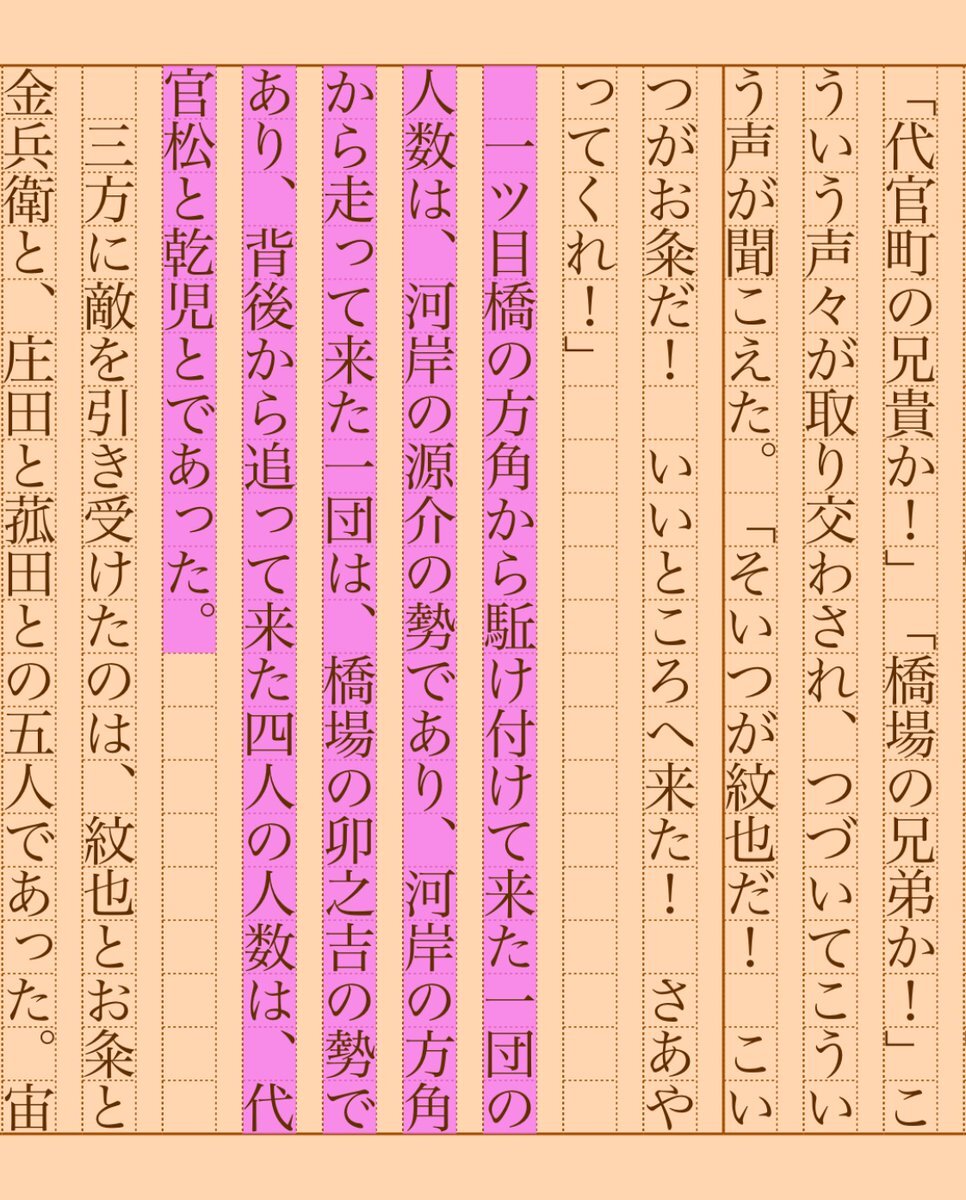 「代官町の兄貴か！」「橋場の兄弟か！」こ
ういう声々が取り交わされ、つづいてこうい
う声が聞こえた。「そいつが紋也だ！　こい
つがお粂だ！　いいところへ来た！　さあや
ってくれ！」
　一ツ目橋の方角から駈け付けて来た一団の
人数は、河岸の源介の勢であり、河岸の方角
から走って来た一団は、橋場の卯之吉の勢で
あり、背後から追って来た四人の人数は、代
官松と乾児とであった。
　三方に敵を引き受けたのは、紋也とお粂と
金兵衛と、庄田と菰田との五人であった。宙